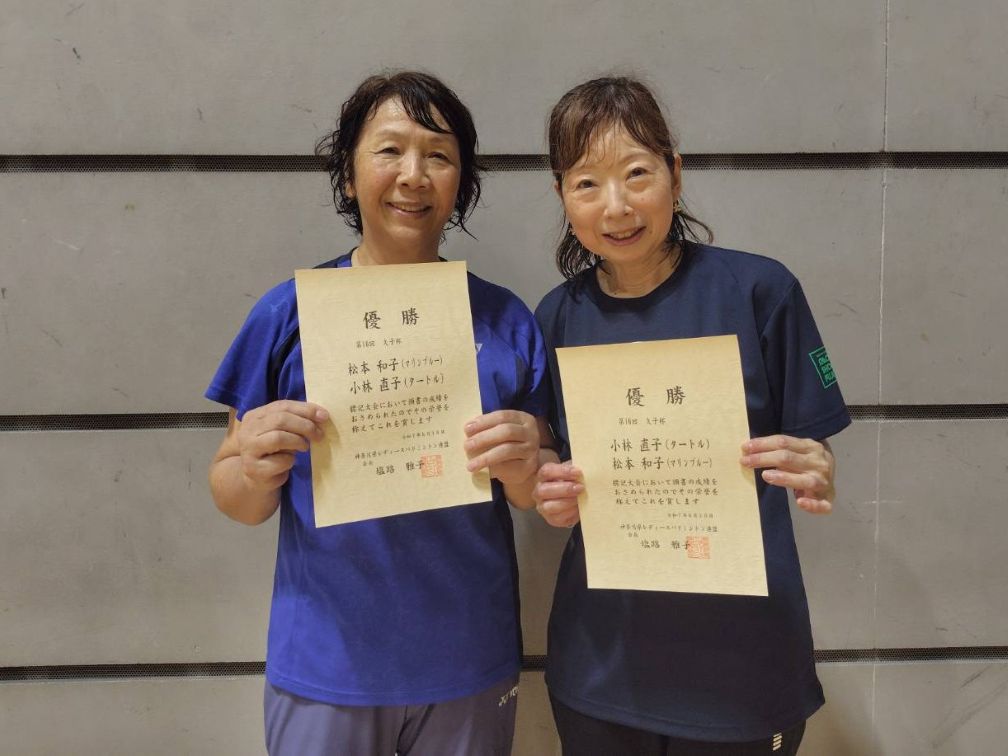 優勝
第16回 久子杯
松本 和子(マリンブルー)
小林 直子(タートル)
標記大会において頭書の成績を
おさめられたのでその栄誉を
称えてこれを賞します
神奈川県レディースバドミントン連盟
会長
塩路 雅子
優勝
第16回 久子杯
小林 直子(タートル)
松本 和子(マリンブルー)
標記大会において頭書の成績を
おさめられたのでその栄誉を
称えてこれを賞します
神奈川県レディースバドミントン連盟
会長
塩路 雅子
YONEX